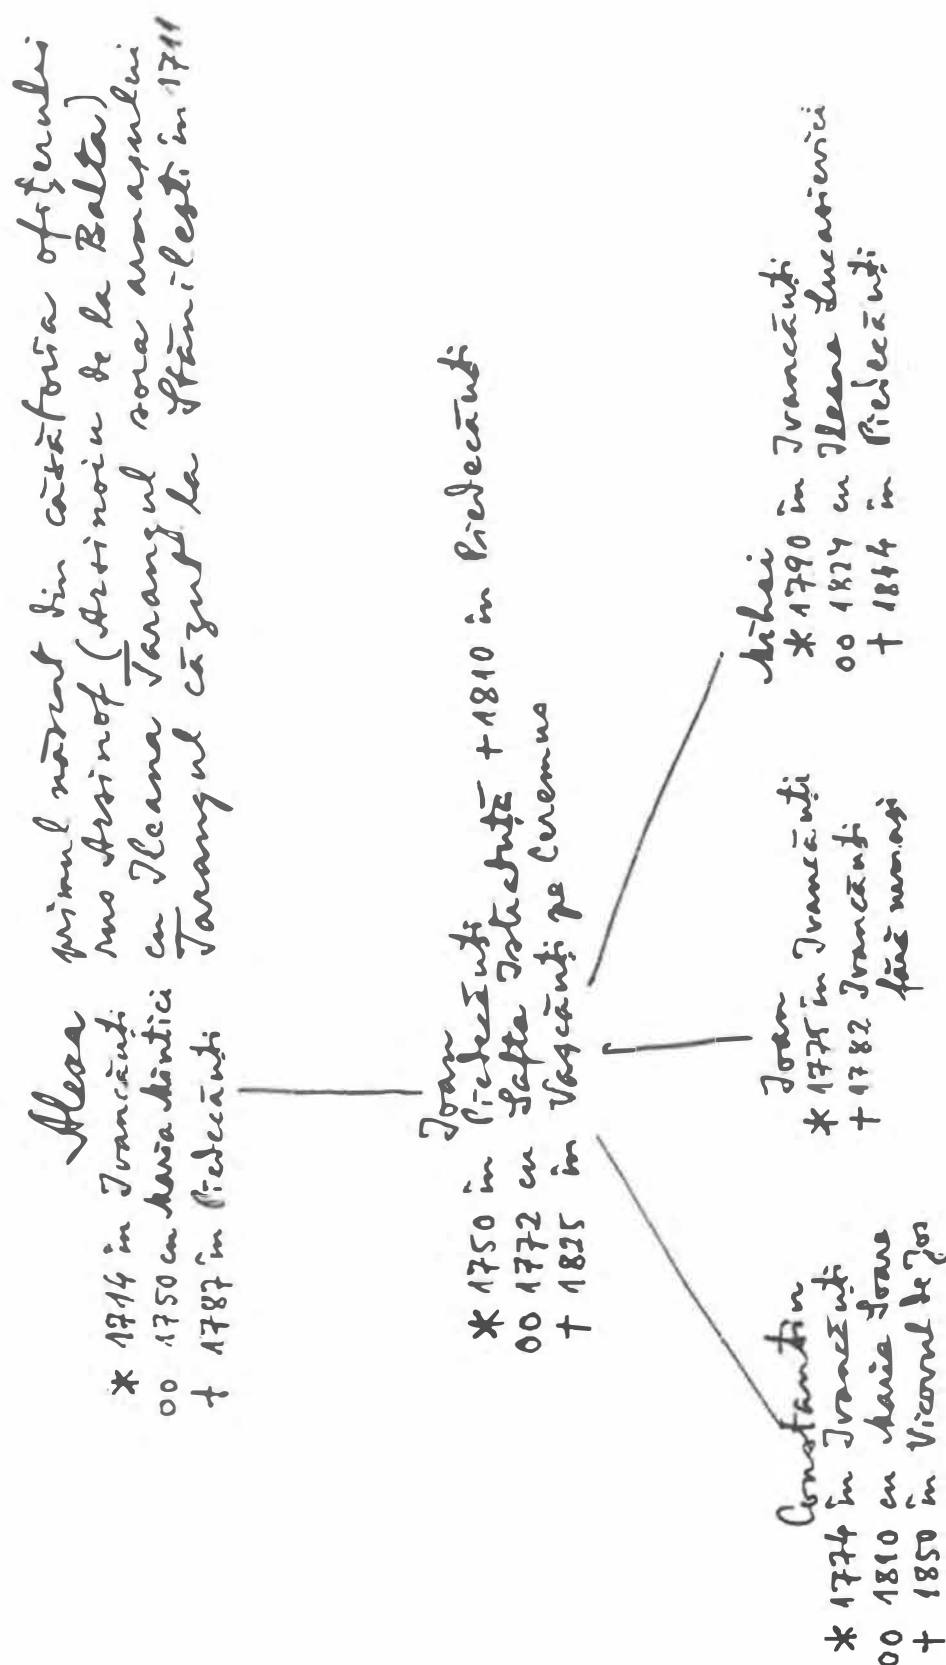 Alexa
* 1714 în Ivancăuți
oo 1750 cu Maria Mîntici
+ 1787 în Piedecăuți
primul născut din căsătoria ofițerului
rus Arsinof (Arsinoiu de la Balta)
cu Ileana Tarangul sora armașului
Tarangul căzut la Stănilești în 1711
Ioan
* 1750 în Piedecăuți
oo 1772 cu Safta Istratuță +1810 în Piedecăuți
+ 1825 în Vașcăuți pe Ceremus
Constantin
* 1774 în Ivancăuți
oo 1810 cu Maria Soare
+ 1850 în Vicovul de Jos
Ioan
* 1775 în Ivancăuți
+ 1782 Ivancăuți
fără urmași
Mihai
* 1790 în Ivancăuți
oo 1824 cu Ileana Lucasievici
+ 1844 în Piedecăuți